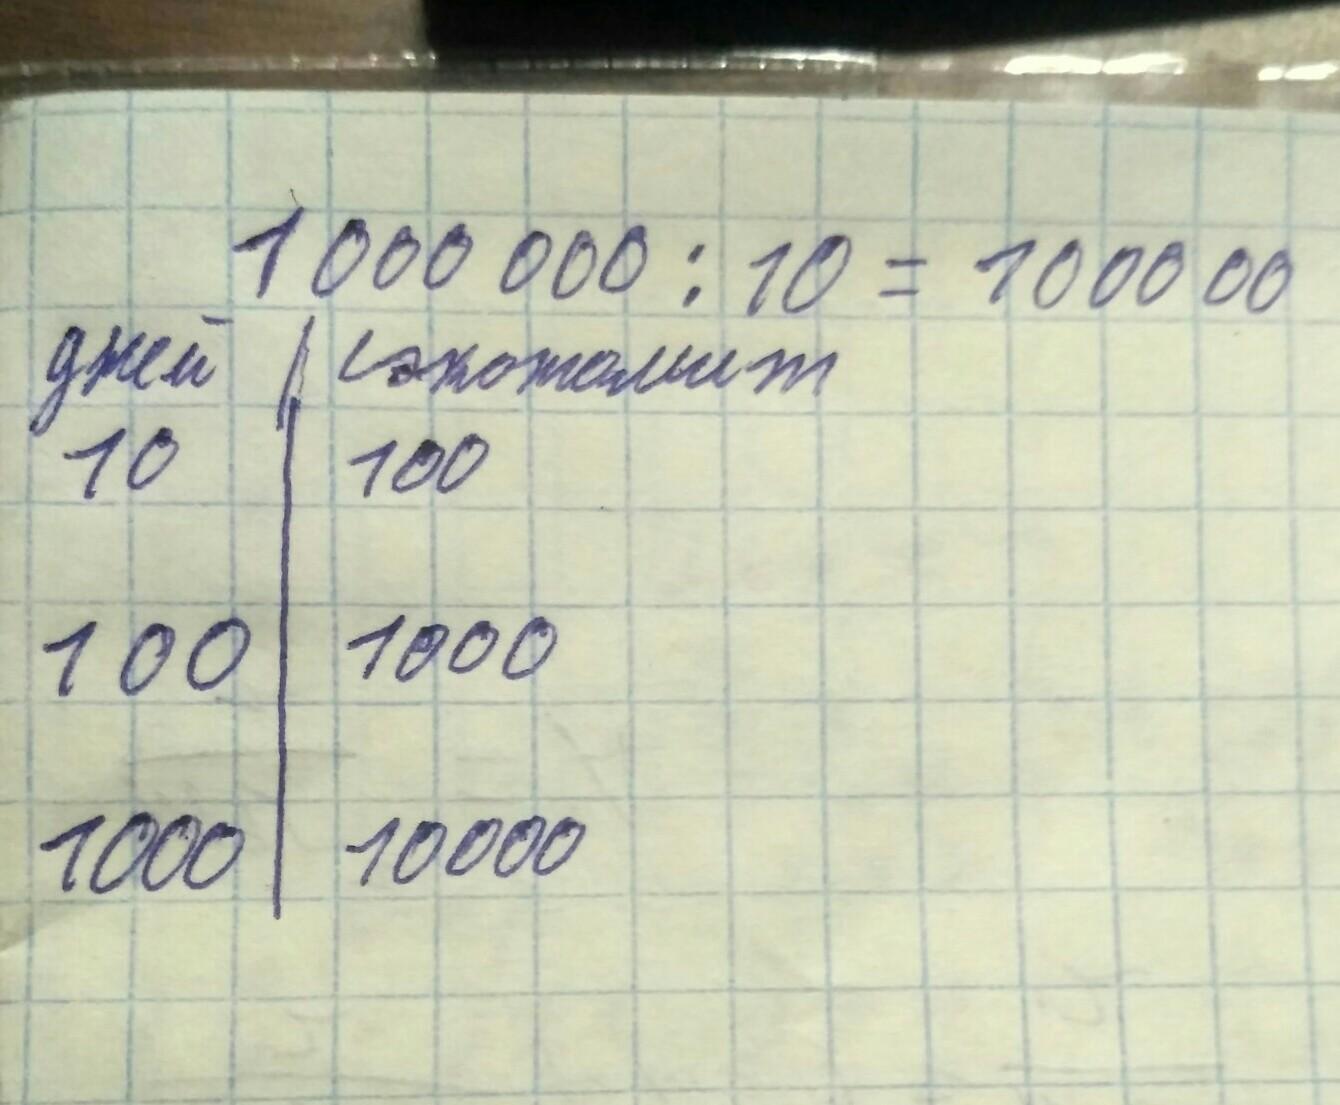 1 000 000 : 10 = 100000
дней | сэкономит
10 | 100
100 | 1000
1000 | 10000